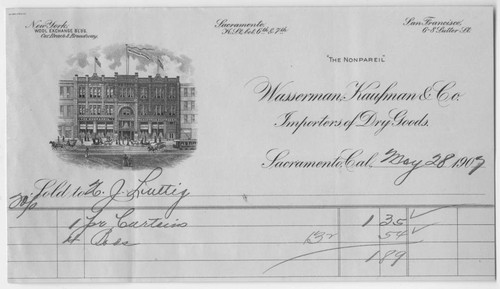 New York,
WOOL EXCHANGE BLDG.
Cor. Beach & Broadway.
Sacramento,
K. St. bet. 6th & 7th
San Francisco,
6-8 Sutter St.
"THE NONPAREIL"
Wasserman, Kaufman & Co.
Importers of Dry Goods.
Sacramento, Cal., May 28 1907
Sold to H. J. Luttig
1 pr Curtains 1 35
4 54
1 89